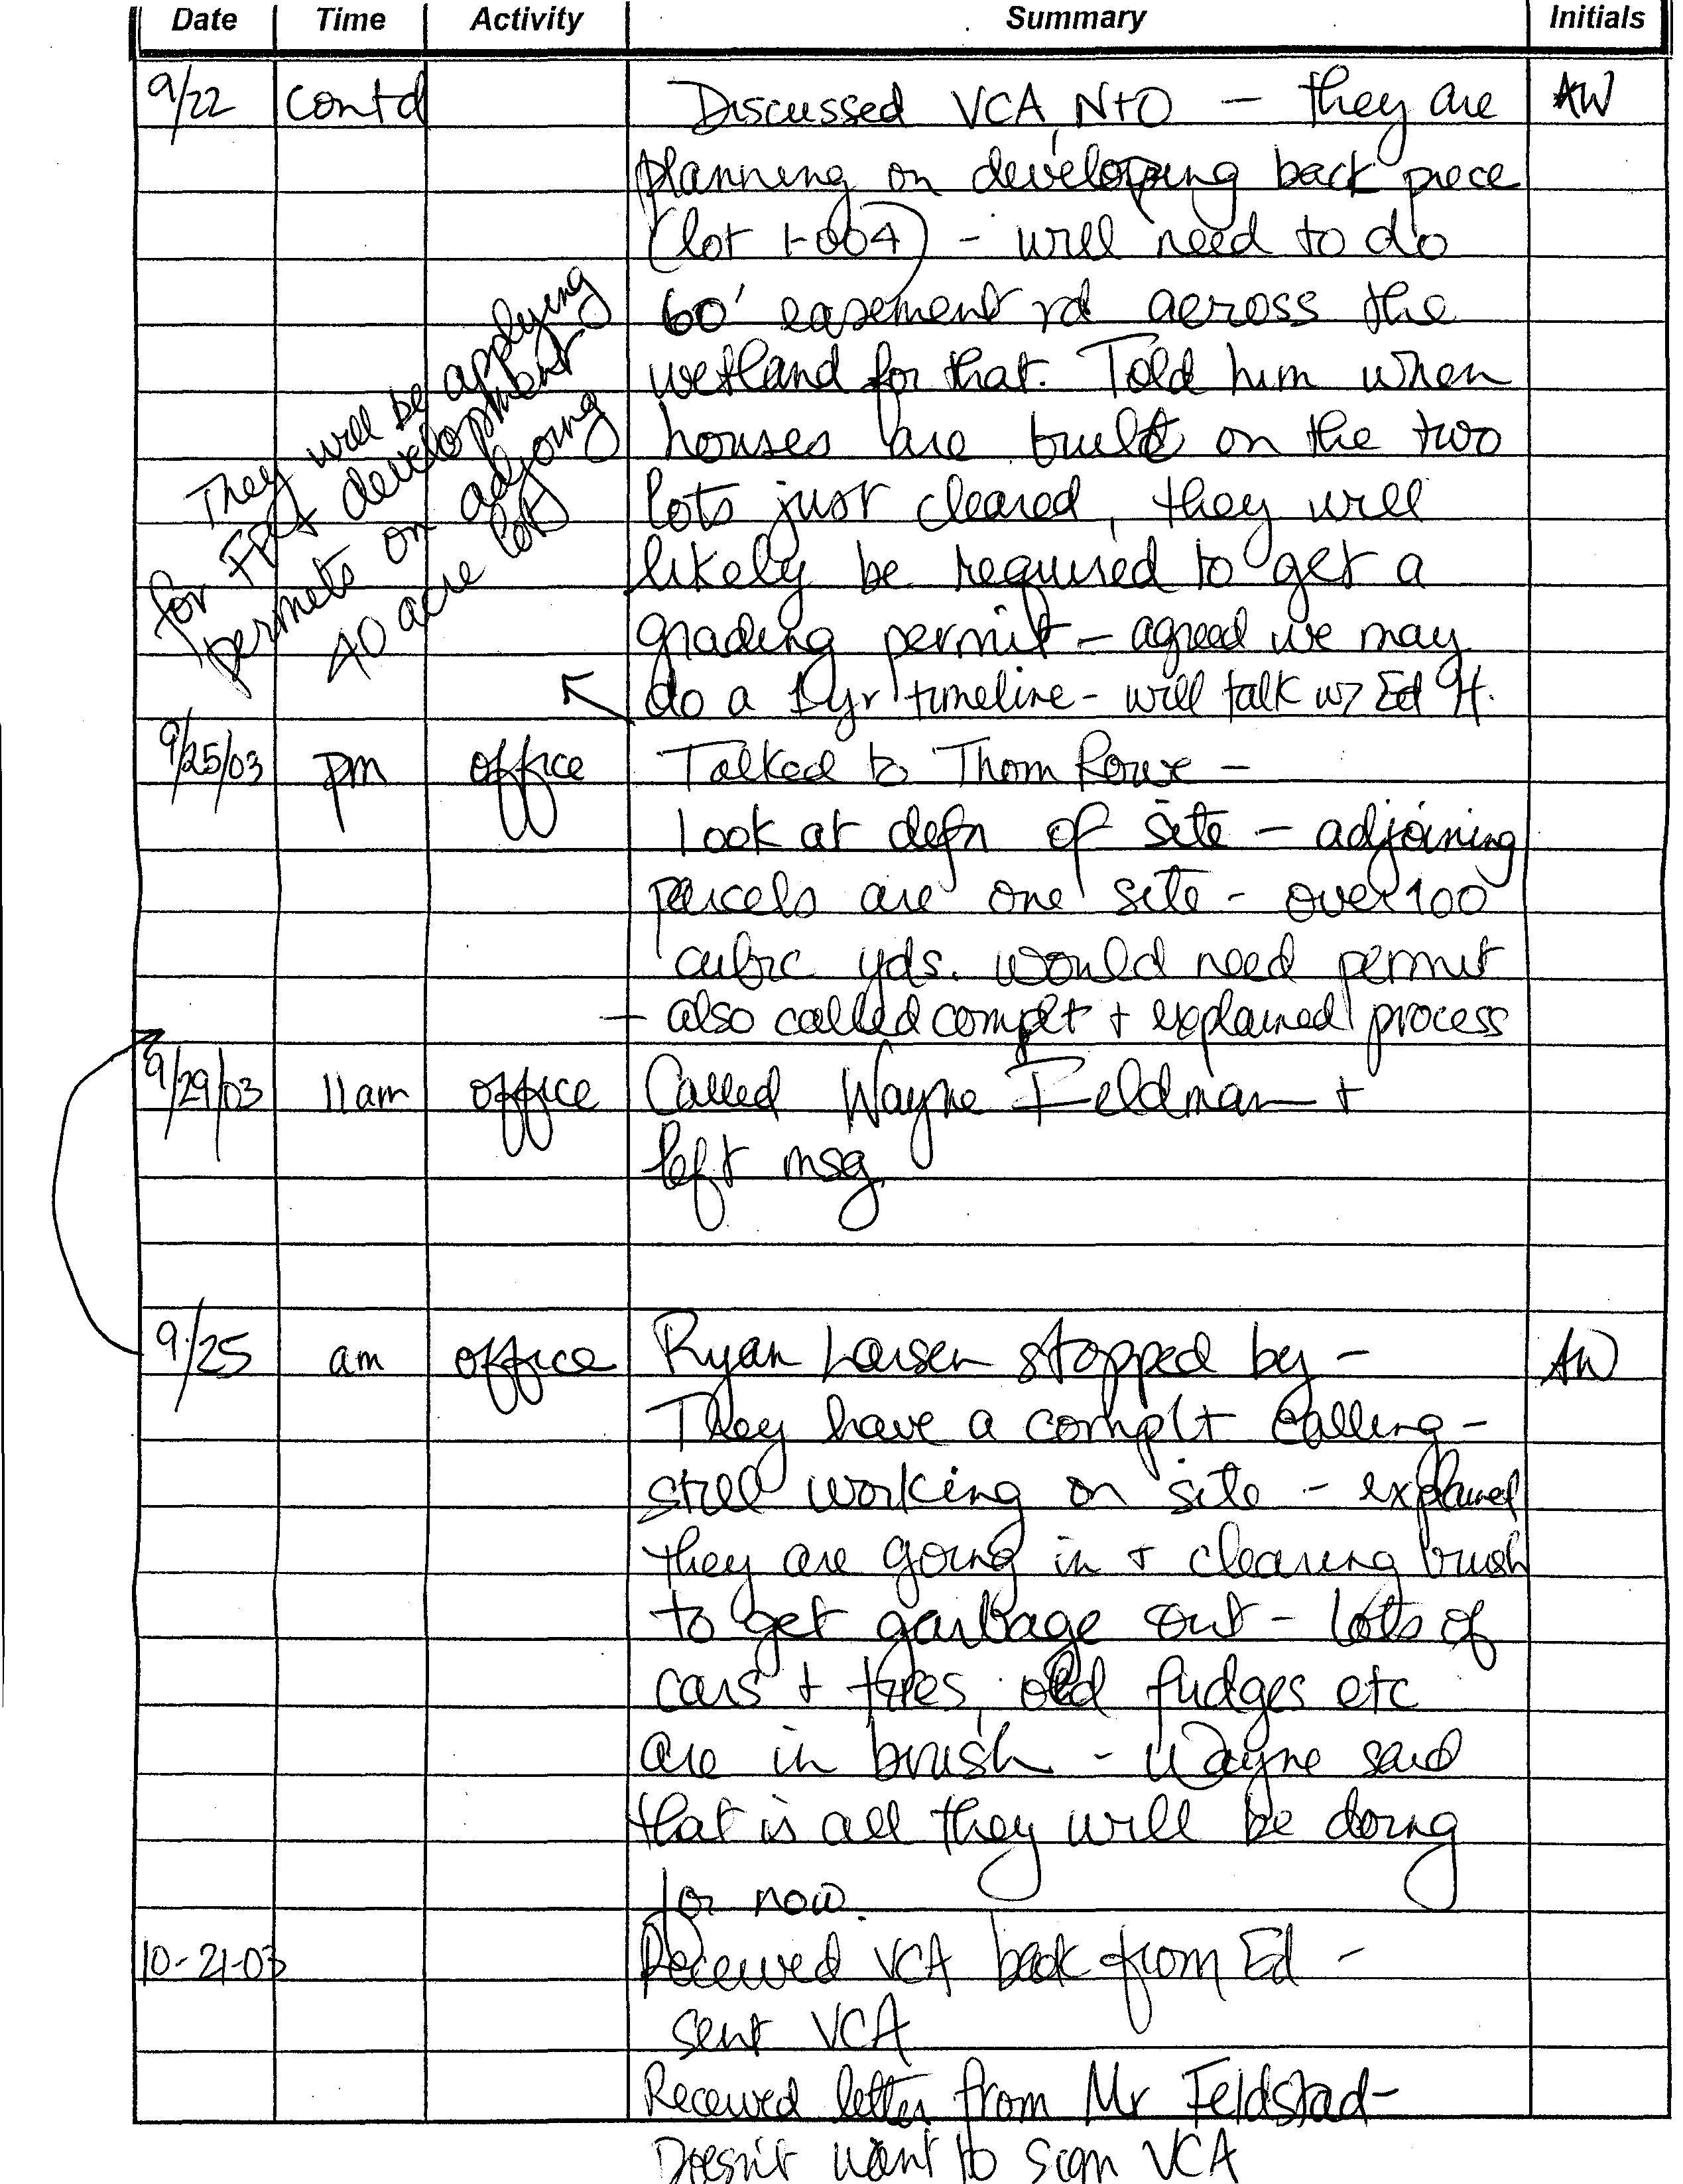 Date Time Activity Summary Initials
9/22 contd Discussed VCA, NtO – they are AW
planning on developing back piece
(lot 1-004) - will need to do
60' easement rd across the
wetland for that. Told him when
houses are built on the two
lots just cleared, they will
likely be required to get a
grading permit – agreed we may
do a 1 yr timeline - will talk w/ Ed H.
They will be applying
for FPA & development
permits on adjoing
40 acre lots
9/25/03 pm office Talked to Thom Rowe –
Look at defn of site – adjoining
parcels are one site - over 100
cubic yds. would need permit
– also called complt + explained process
9/29/03 11am office Called Wayne Feldman +
left msg.
9/25 am office Ryan Larsen stopped by – AW
They have a complt calling -
still working on site - explained
they are going in + clearing brush
to get garbage out - lots of
cars + tires, old fridges etc
are in brush - Wayne said
that is all they will be doing
for now.
10-21-03 Received VCA back from Ed -
sent VCA
Received letter from Mr Feldstad-
Doesn't want to sign VCA